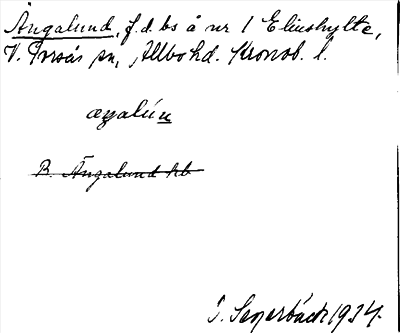 Ängalund, f.d. bs å nr 1 Elinshylte,
V. Torsås sn, Allbo hd. Kronob. l.
æŋalún
B. Ängalund hb
I. Segerbäck 1934.